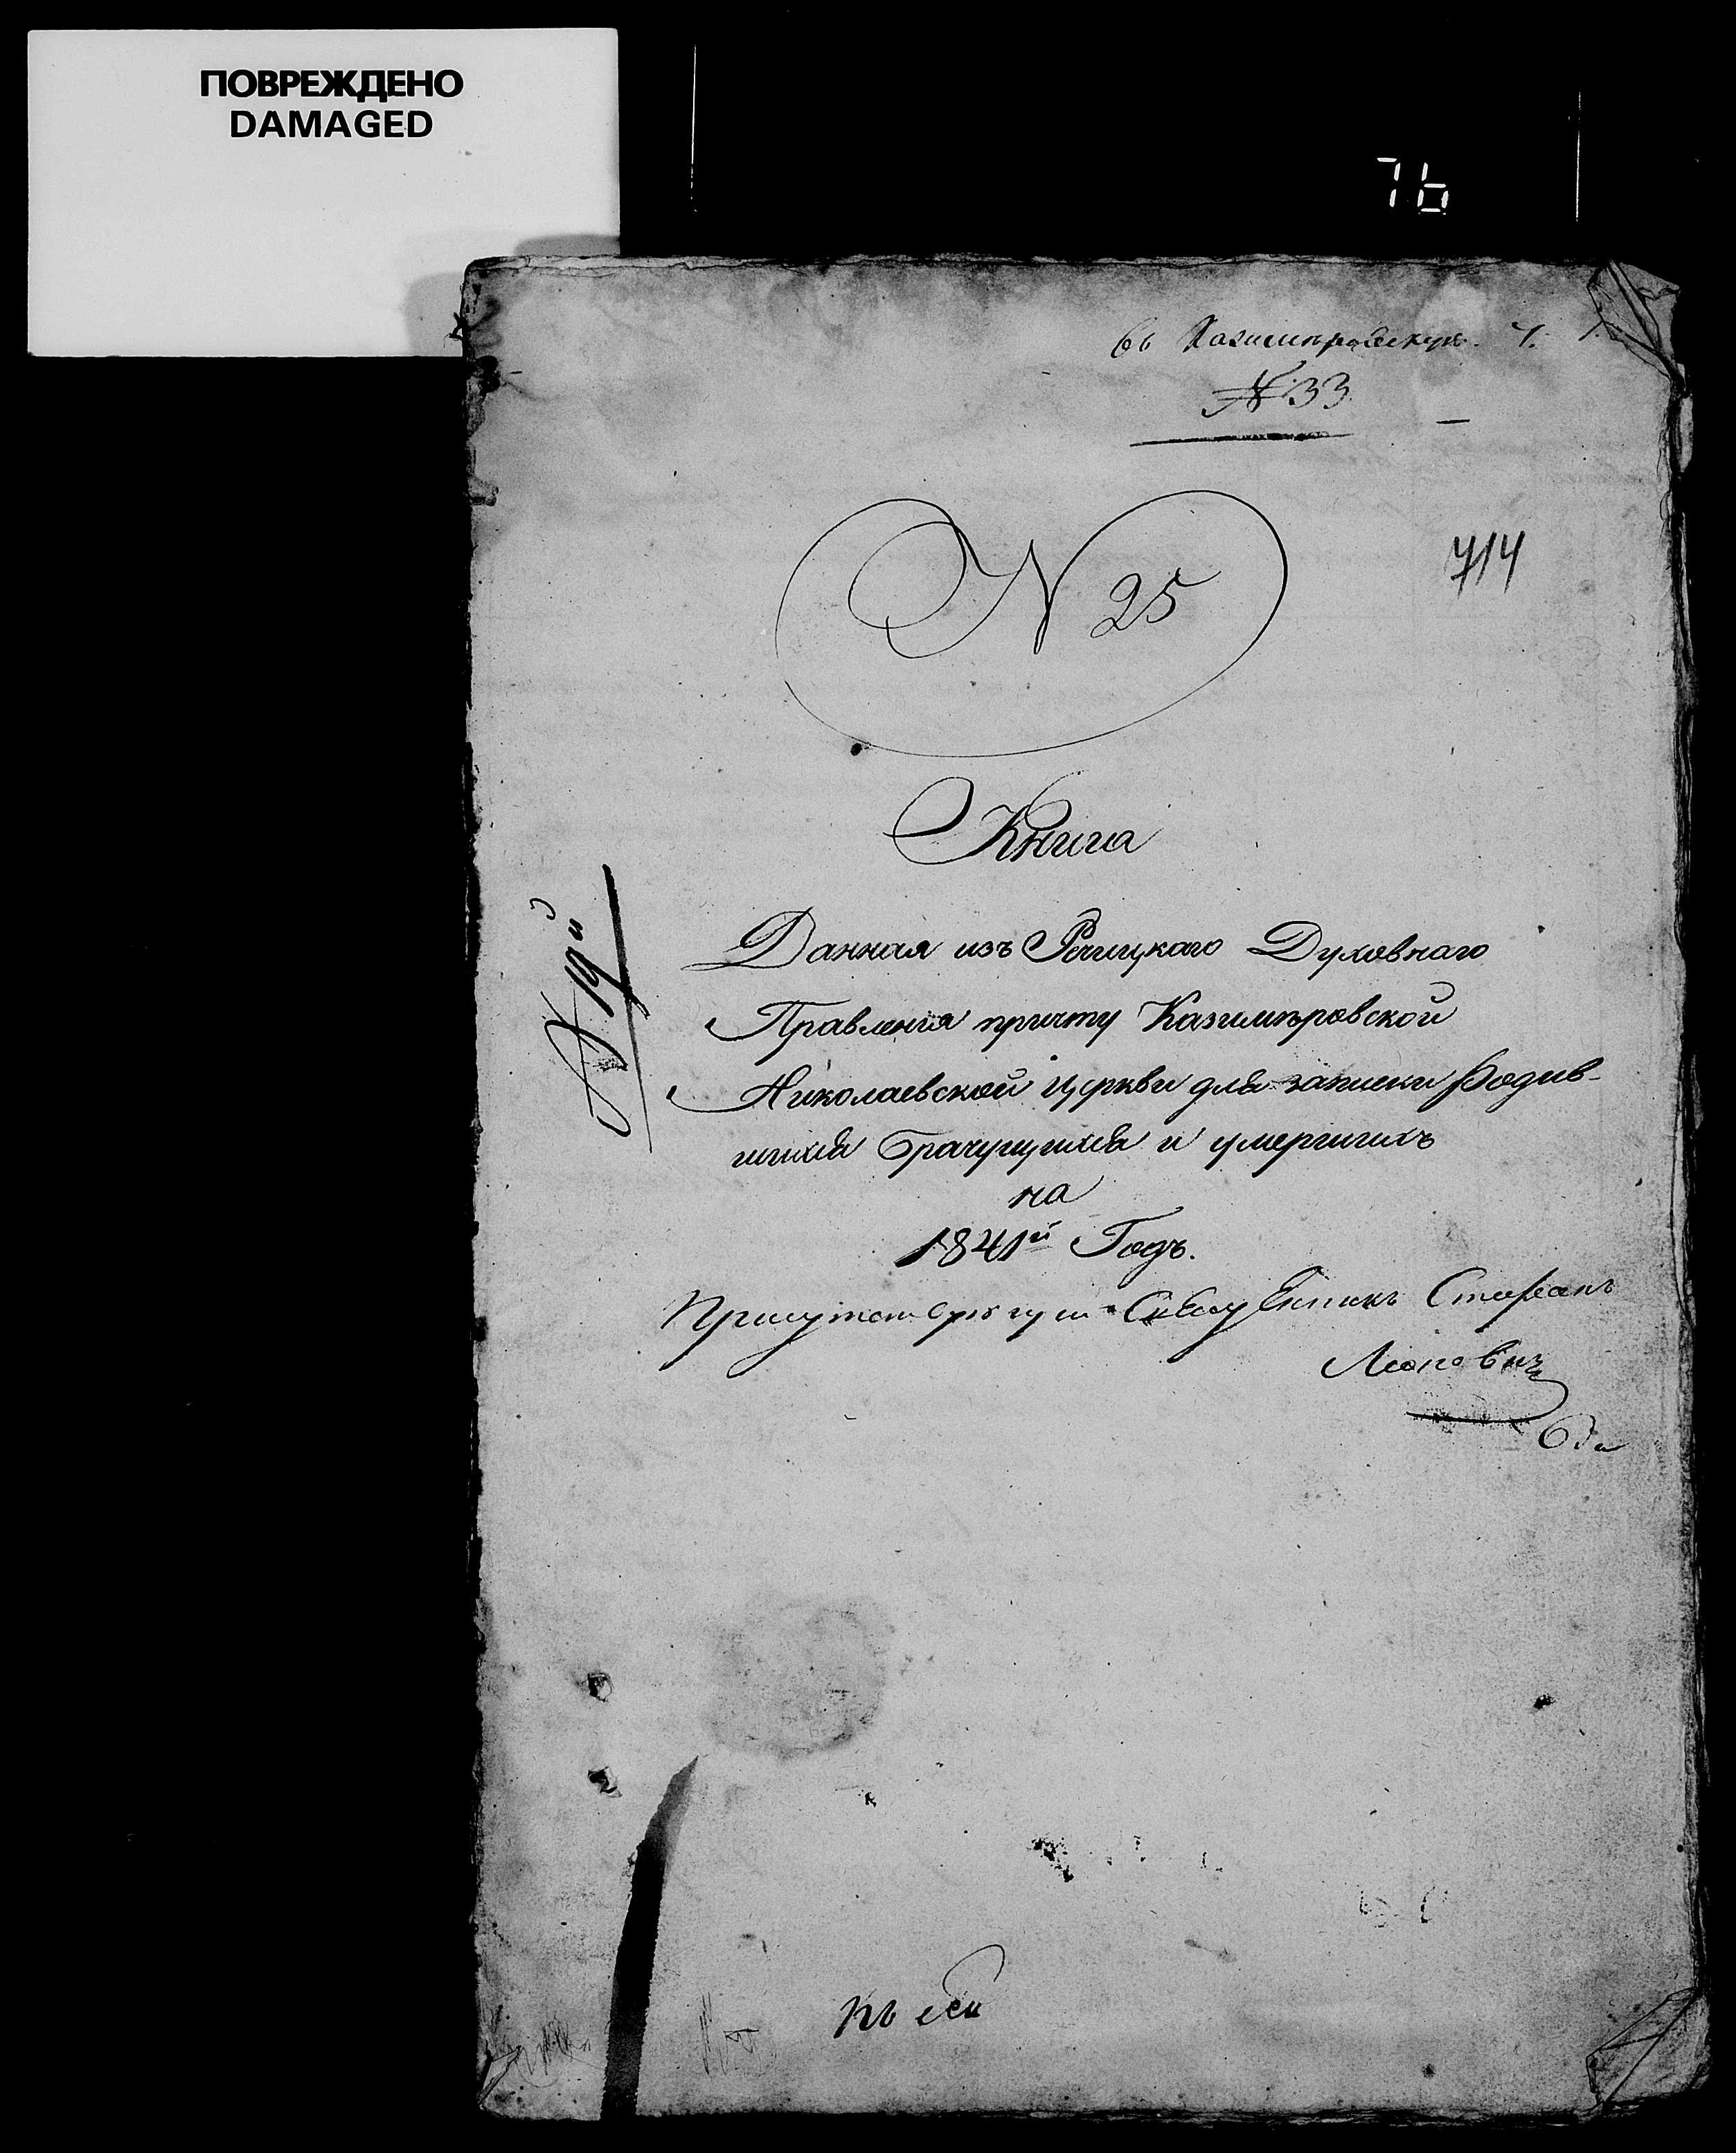 ПОВРЕЖДЕНО
DAMAGED
76
въ Казимировскую. Ч.
№ 33
714
N 25
Книга
№ 19й
Данная изъ Речицкаго Духовнаго
Правленія причту Казимировской
Николаевской Церкви для записки Родив-
шихся Брачущихся и умершихъ
на
1841й Годъ.
Присутствующій Стефанъ